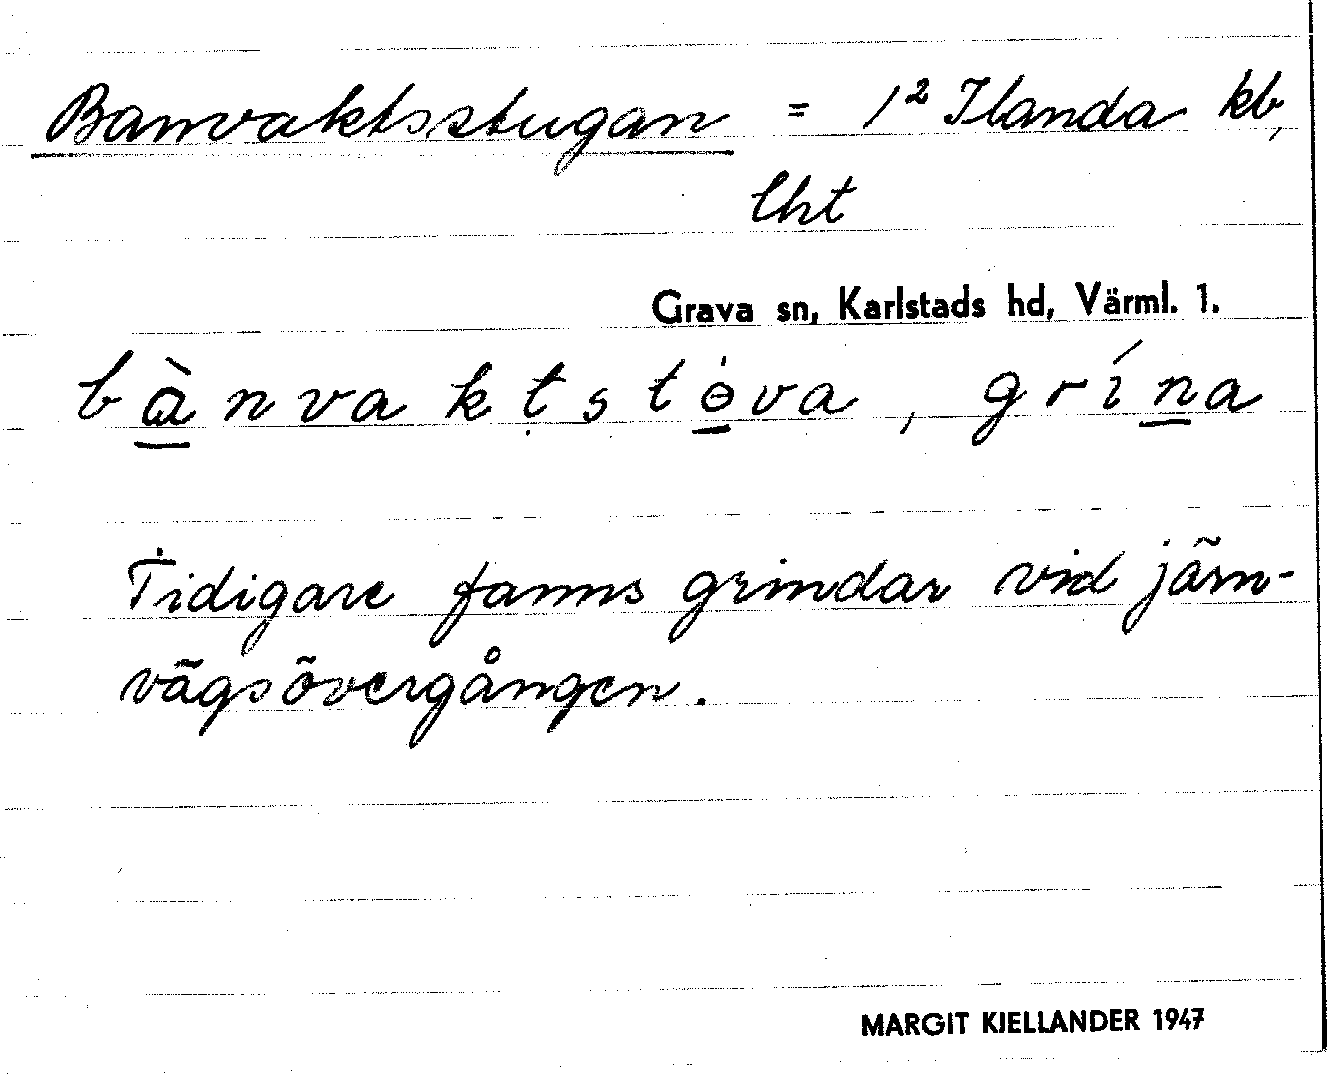 Banvaktsstugan = 1² Ilanda kb,
lht
Grava sn, Karlstads hd, Värml. 1.
bànvaktstɵ́va, grína
Tidigare fanns grindar vid järn-
vägsövergången.
MARGIT KJELLANDER 1947